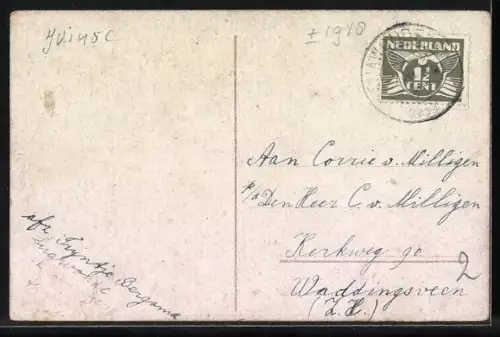 ± 1910
NEDERLAND
1½
CENT
Aan Corrie v. Milligen
p/a Den Heer C. v. Milligen
Kerkweg 90
Waddingsveen
(Z.H.)
2
afz Trijntje Bergsma